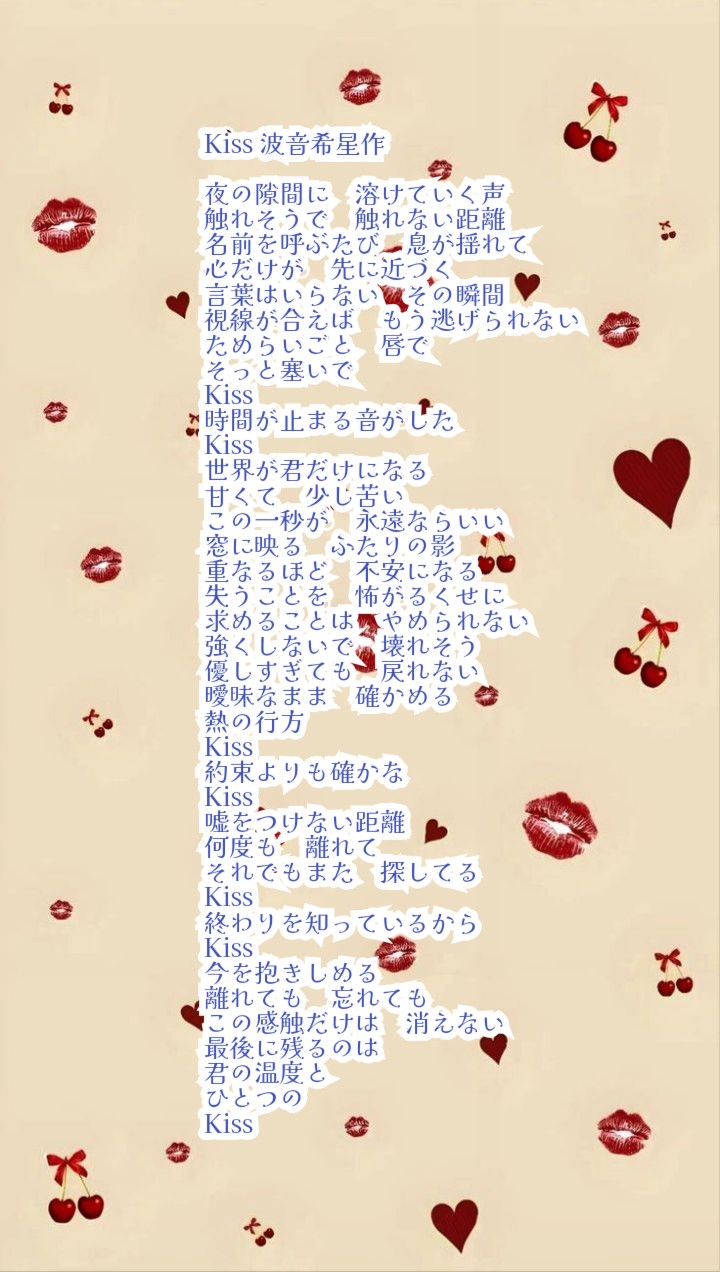 Kiss 波音希星作
夜の隙間に　溶けていく声
触れそうで　触れない距離
名前を呼ぶたび　息が揺れて
心だけが　先に近づく
言葉はいらない　その瞬間
視線が合えば　もう逃げられない
ためらいごと　唇で
そっと塞いで
Kiss
時間が止まる音がした
Kiss
世界が君だけになる
甘くて　少し苦い
この一秒が　永遠ならいい
窓に映る　ふたりの影
重なるほど　不安になる
失うことを　怖がるくせに
求めることは　やめられない
強くしないで　壊れそう
優しすぎても　戻れない
曖昧なまま　確かめる
熱の行方
Kiss
約束よりも確かな
Kiss
嘘をつけない距離
何度も　離れて
それでもまた　探してる
Kiss
終わりを知っているから
Kiss
今を抱きしめる
離れても　忘れても
この感触だけは　消えない
最後に残るのは
君の温度と
ひとつの
Kiss